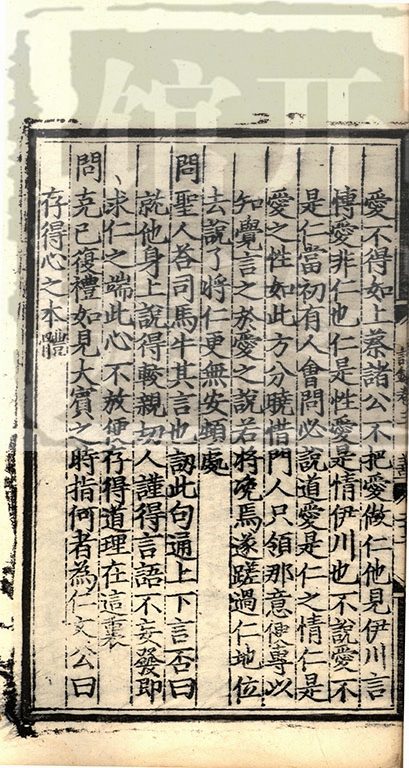 愛不得如上蔡諸公不把愛做仁他見伊川言
博愛非仁也仁是性愛是情伊川也不說愛不
是仁當初有人會問必說道愛是仁之情仁是
愛之性如此方分曉惜門人只領那意便專以
知覺言之於愛之說若將浼焉遂蹉過仁地位
去說了將仁更無安頓處
問聖人荅司馬牛其言也訒此句通上下言否曰
就他身上說得較親切人謹得言語不妄發即
求仁之端此心不放便存得道理在這裏
問克己復禮如見大賓之時指何者為仁文公曰
存得心之本體